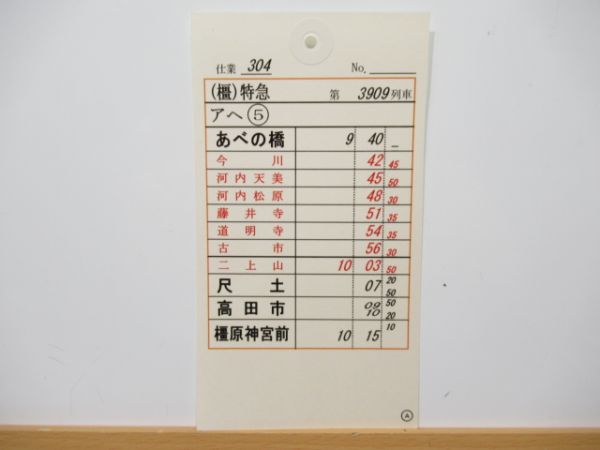 仕業 304 No.
(橿)特急 第 3909 列車
アヘ ⑤
あべの橋 9 40 —
今川 42 45
河内天美 45 50
河内松原 48 30
藤井寺 51 35
道明寺 54 35
古市 56 30
二上山 10 03 50
尺土 07 20 50
高田市 09 50
10 20
橿原神宮前 10 15 10
Ⓐ